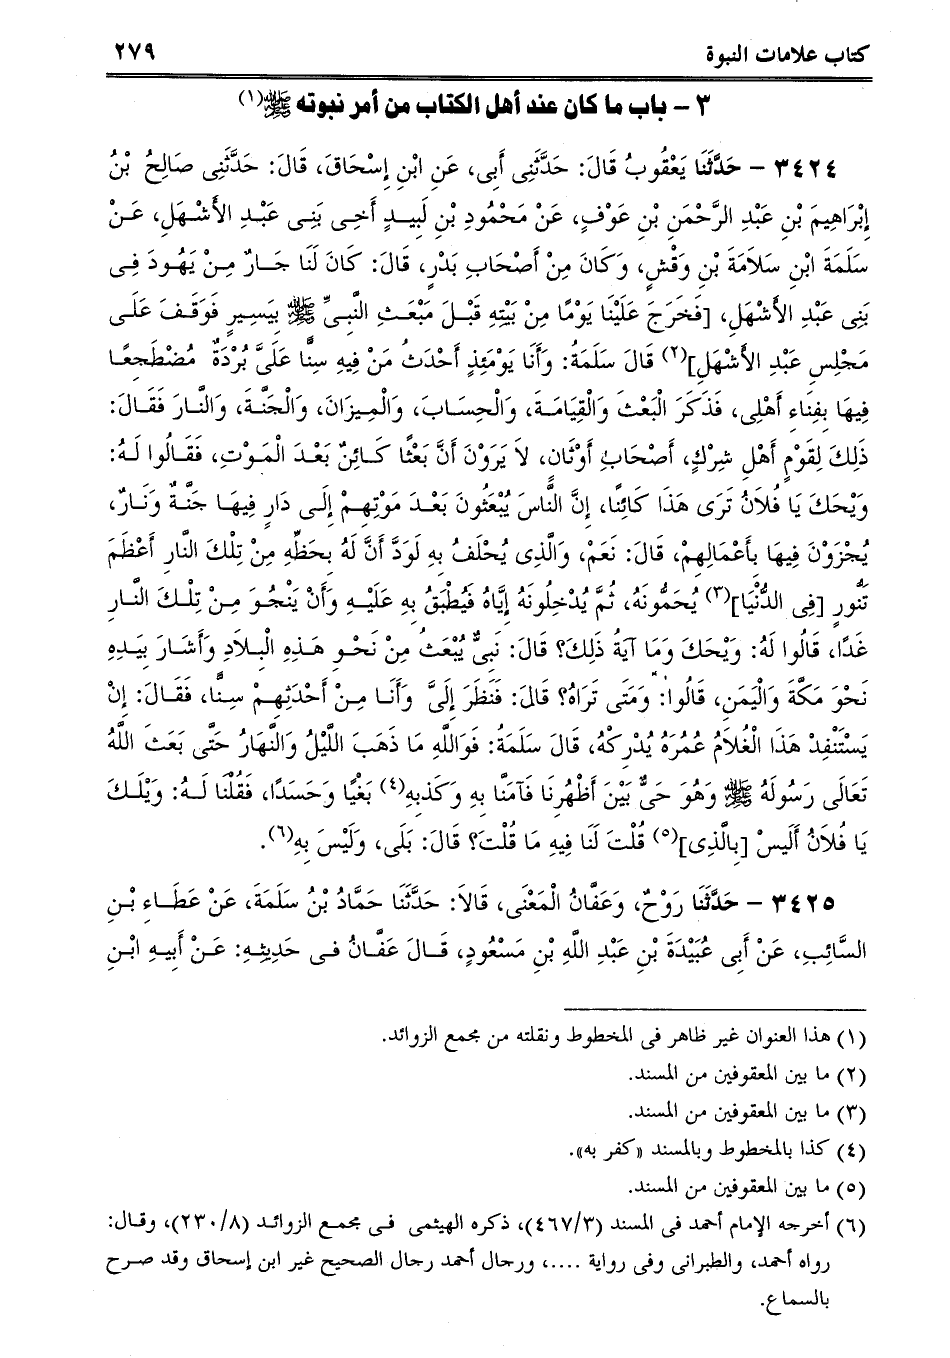 كتاب علامات النبوة
٢٧٩
٣ – باب ما كان عند أهل الكتاب من أمر نبوته ﷺ(١)
٣٤٢٤ – حَدَّثَنَا يَعْقُوبُ قَالَ: حَدَّثَنِى أَبِى، عَنِ ابْنِ إِسْحَاقَ، قَالَ: حَدَّثَنِى صَالِحُ بْنُ
إِبْرَاهِيمَ بْنِ عَبْدِ الرَّحْمَنِ بْنِ عَوْفٍ، عَنْ مَحْمُودِ بْنِ لَبِيدٍ أَخِى بَنِى عَبْدِ الأَشْهَلِ، عَنْ
سَلَمَةَ ابْنِ سَلاَمَةَ بْنِ وَقْشٍ، وَكَانَ مِنْ أَصْحَابِ بَدْرٍ، قَالَ: كَانَ لَنَا جَارٌ مِنْ يَهُودَ فِى
بَنِى عَبْدِ الأَشْهَلِ، [فَخَرَجَ عَلَيْنَا يَوْمًا مِنْ بَيْتِهِ قَبْلَ مَبْعَثِ النَّبِىِّ ﷺ بِيَسِيرٍ فَوَقَفَ عَلَى
مَجْلِسِ عَبْدِ الأَشْهَلِ](٢) قَالَ سَلَمَةُ: وَأَنَا يَوْمَئِذٍ أَحْدَثُ مَنْ فِيهِ سِنًّا عَلَىَّ بُرْدَةٌ مُضْطَجِعًا
فِيهَا بِفِنَاءِ أَهْلِى، فَذَكَرَ الْبَعْثَ وَالْقِيَامَةَ، وَالْحِسَابَ، وَالْمِيزَانَ، وَالْجَنَّةَ، وَالنَّارَ فَقَالَ:
ذَلِكَ لِقَوْمٍ أَهْلِ شِرْكٍ، أَصْحَابُ أَوْثَانٍ، لاَ يَرَوْنَ أَنَّ بَعْثًا كَائِنٌ بَعْدَ الْمَوْتِ، فَقَالُوا لَهُ:
وَيْحَكَ يَا فُلاَنُ تَرَى هَذَا كَائِنًا، إِنَّ النَّاسَ يُبْعَثُونَ بَعْدَ مَوْتِهِمْ إِلَى دَارٍ فِيهَا جَنَّةٌ وَنَارٌ،
يُجْزَوْنَ فِيهَا بِأَعْمَالِهِمْ، قَالَ: نَعَمْ، وَالَّذِى يُحْلَفُ بِهِ لَوَدَّ أَنَّ لَهُ بِحَظِّهِ مِنْ تِلْكَ النَّارِ أَعْظَمَ
تَنُّورٍ [فِى الدُّنْيَا](٣) يُحَمُّونَهُ، ثُمَّ يُدْخِلُونَهُ إِيَّاهُ فَيُطْبَقُ بِهِ عَلَيْهِ وَأَنْ يَنْجُوَ مِنْ تِلْكَ النَّارِ
غَدًا، قَالُوا لَهُ: وَيْحَكَ وَمَا آيَةُ ذَلِكَ؟ قَالَ: نَبِىٌّ يُبْعَثُ مِنْ نَحْوِ هَذِهِ الْبِلاَدِ وَأَشَارَ بِيَدِهِ
نَحْوَ مَكَّةَ وَالْيَمَنِ، قَالُوا: وَمَتَى تَرَاهُ؟ قَالَ: فَنَظَرَ إِلَىَّ وَأَنَا مِنْ أَحْدَثِهِمْ سِنًّا، فَقَالَ: إِنْ
يَسْتَنْفِدْ هَذَا الْغُلاَمُ عُمُرَهُ يُدْرِكْهُ، قَالَ سَلَمَةُ: فَوَاللَّهِ مَا ذَهَبَ اللَّيْلُ وَالنَّهَارُ حَتَّى بَعَثَ اللَّهُ
تَعَالَى رَسُولَهُ ﷺ وَهُوَ حَىٌّ بَيْنَ أَظْهُرِنَا فَآمَنَّا بِهِ وَكَذبِهِ(٤) بَغْيًا وَحَسَدًا، فَقُلْنَا لَهُ: وَيْلَكَ
يَا فُلاَنُ أَلَيْسَ [بِالَّذِى](٥) قُلْتَ لَنَا فِيهِ مَا قُلْتَ؟ قَالَ: بَلَى، وَلَيْسَ بِهِ(٦).
٣٤٢٥ – حَدَّثَنَا رَوْحٌ، وَعَفَّانُ الْمَعْنَى، قَالاَ: حَدَّثَنَا حَمَّادُ بْنُ سَلَمَةَ، عَنْ عَطَاءِ بْنِ
السَّائِبِ، عَنْ أَبِى عُبَيْدَةَ بْنِ عَبْدِ اللَّهِ بْنِ مَسْعُودٍ، قَالَ عَفَّانُ فِى حَدِيثِهِ: عَنْ أَبِيهِ ابْنِ
(١) هذا العنوان غير ظاهر فى المخطوط ونقلته من مجمع الزوائد.
(٢) ما بين المعقوفين من المسند.
(٣) ما بين المعقوفين من المسند.
(٤) كذا بالمخطوط وبالمسند «كفر به».
(٥) ما بين المعقوفين من المسند.
(٦) أخرجه الإمام أحمد فى المسند (٤٦٧/٣)، ذكره الهيثمى فى مجمع الزوائد (٢٣٠/٨)، وقال:
رواه أحمد، والطبرانى وفى رواية ....، ورجال أحمد رجال الصحيح غير ابن إسحاق وقد صرح
بالسماع.